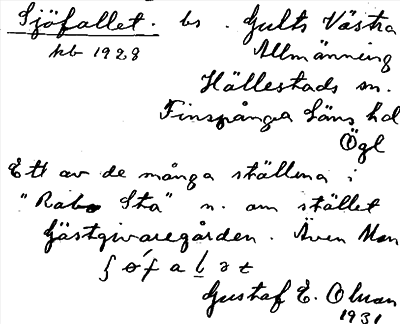 Sjöfallet. bs. Gults Västra
hb 1928 Allmänning
Hällestads sn.
Finspånga läns hd
Ögl
Ett av de många ställena i
"Rabo Sta" n. om stället
Gästgivaregården. Även
ʃ ǿ f a l ə t
Gustaf E. Olman
1931